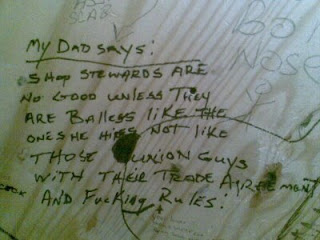 My DAD SAYS:
SHOP STEWARDS ARE
NO GOOD UNLESS THEY
ARE BALLESS LIKE THE
ONES HE HIRES NOT LIKE
THOSE UNION GUYS
WITH THEIR TRADE AGREEMENT
AND FUCKING RULES!
NOSE